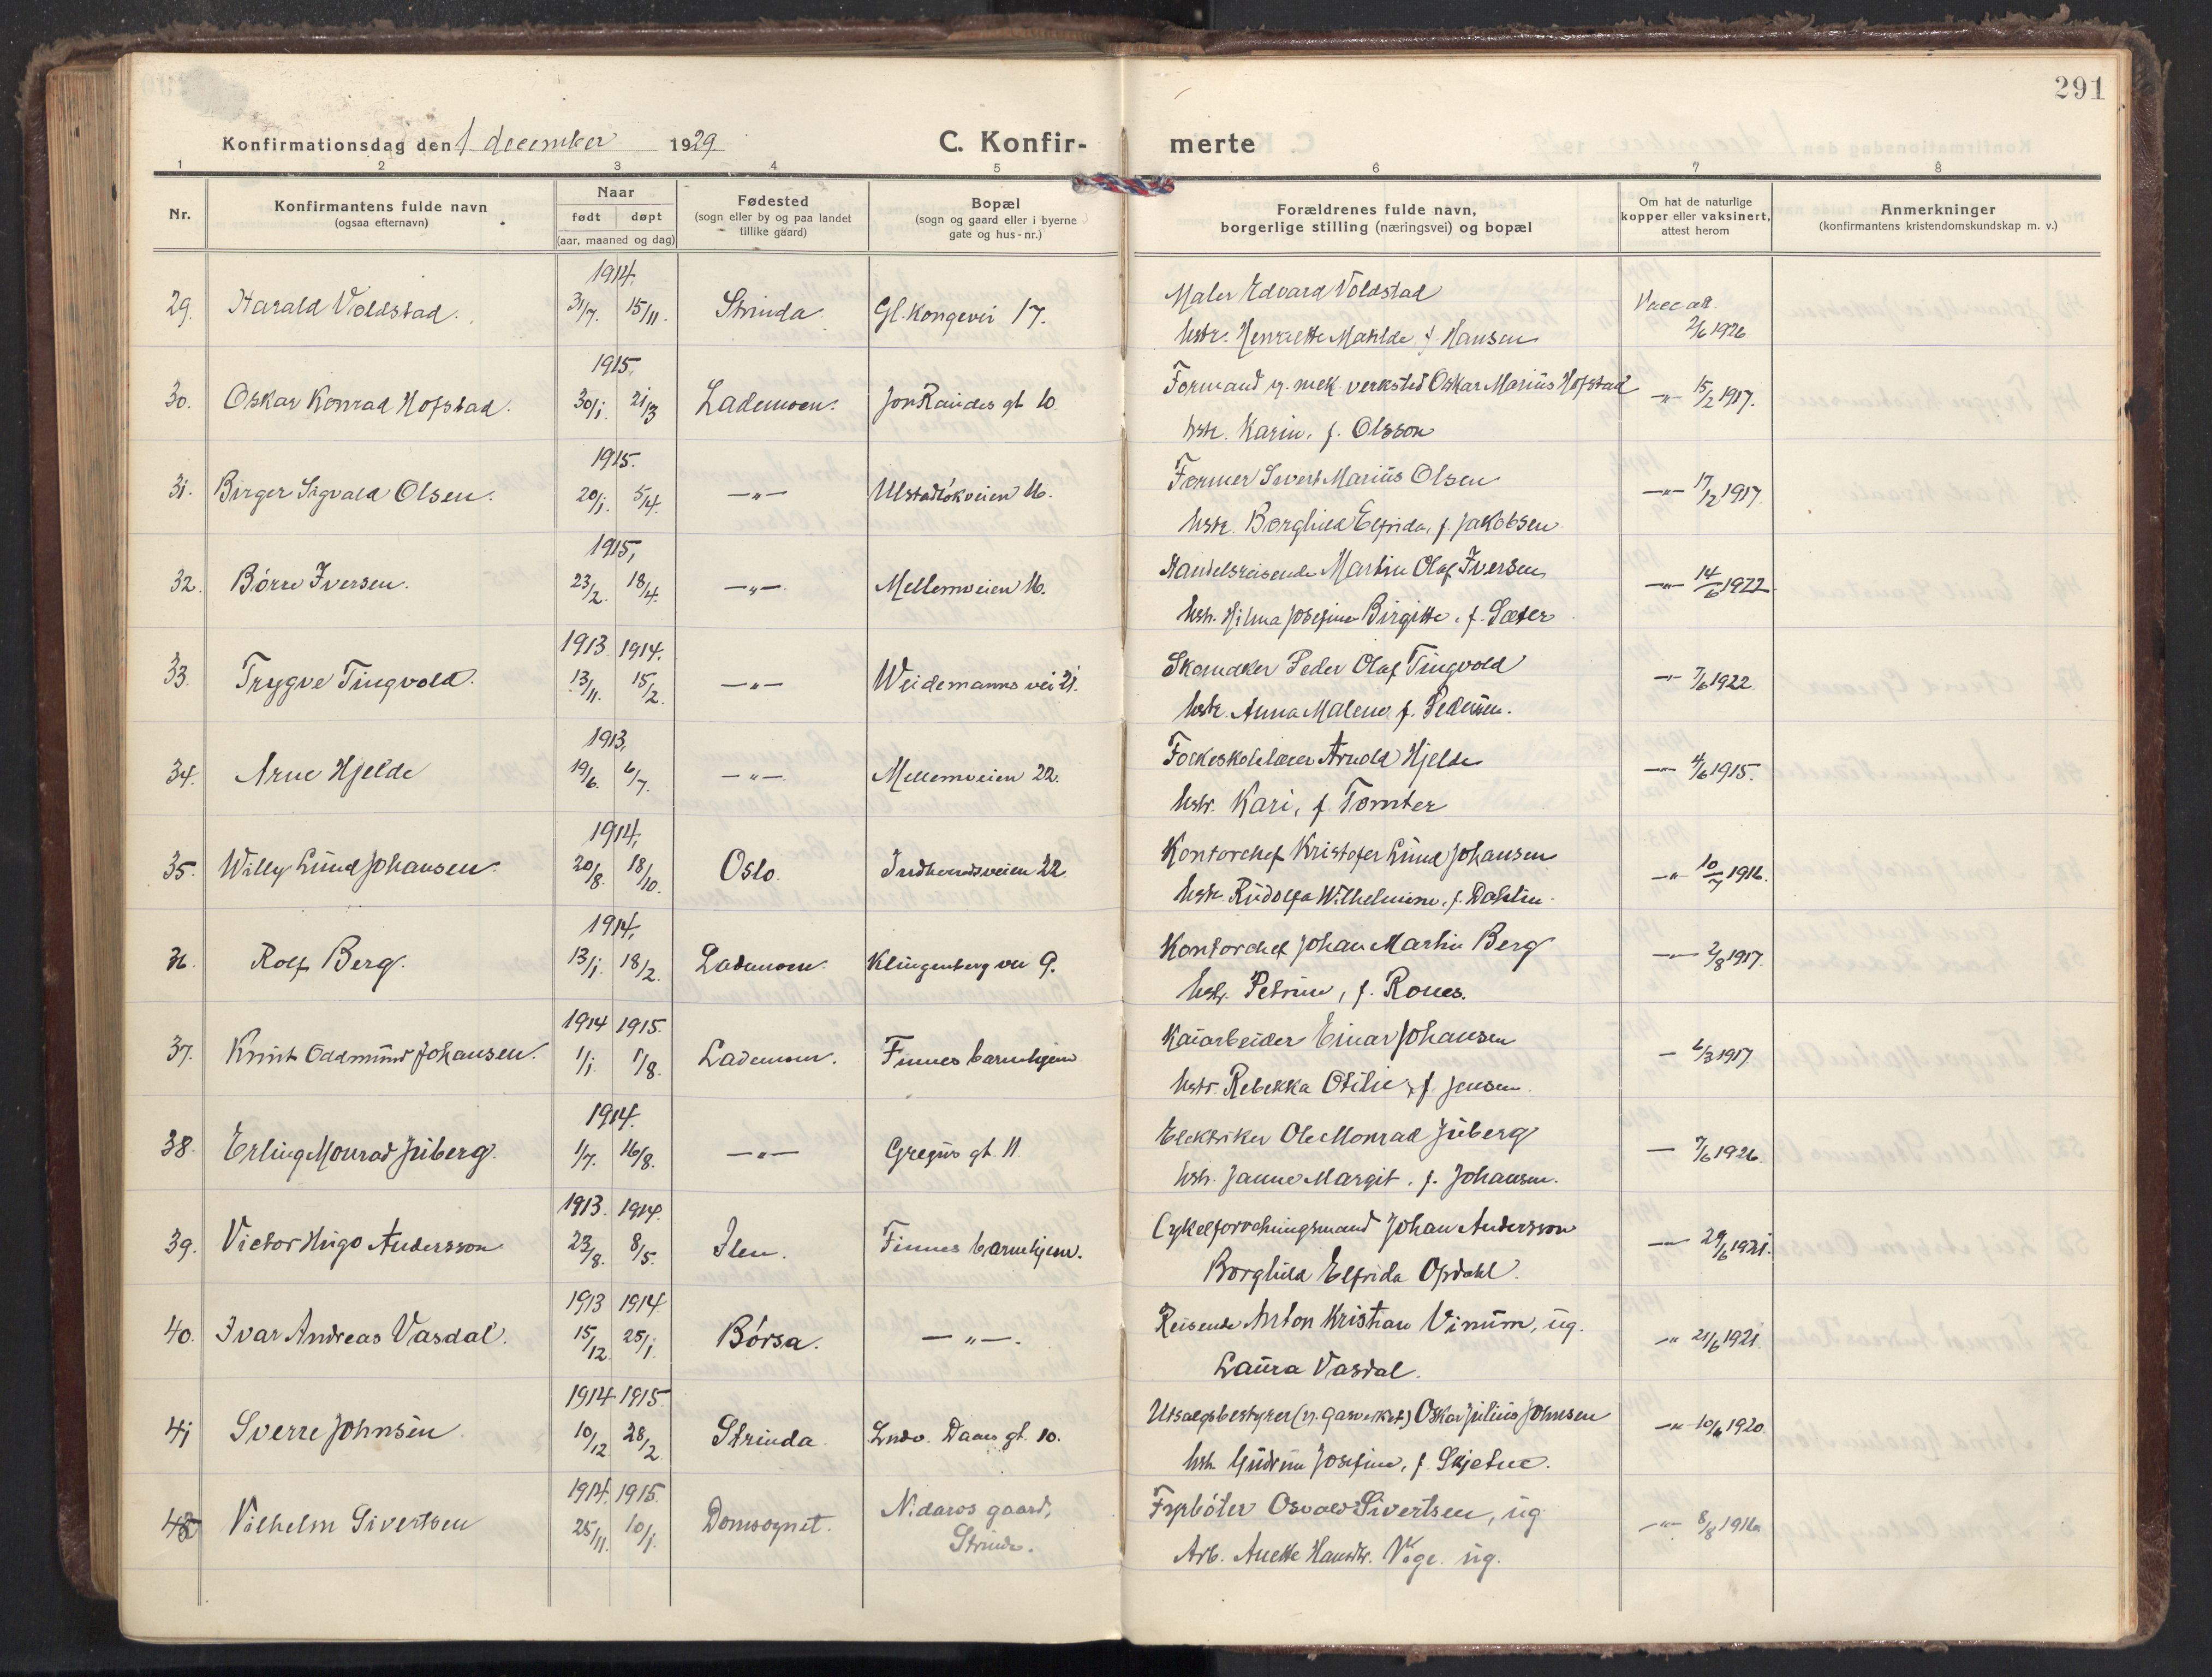 291
Konfirmationsdag den 1 december 1929.
C. Konfir-
merte
1 2 3 4 5 6 7 8
Nr.
Konfirmantens fulde navn
(ogsaa efternavn)
Naar
født døpt
(aar, maaned og dag)
Fødested
(sogn eller by og paa landet
tillike gaard)
Bopæl
(sogn og gaard eller i byerne
gate og hus-nr.)
Forældrenes fulde navn,
borgerlige stilling (næringsvei) og bopæl
Om hat de naturlige
kopper eller vaksinert,
attest herom
Anmerkninger
(konfirmantens kristendomskundskap m. v.)
1914.
29. Harald Voldstad. 31/7. 15/11. Strinda. Gl. Kongevei 17.
Maler Edvard Voldstad
hstr. Henriette Matilde f. Hansen
Vacc att.
2/6 1926
1915.
30. Oskar Konrad Hofstad. 30/1. 21/3 Lademoen. Jon Raudes gt 10.
Formand v. mek. verksted Oskar Marius Hofstad
hstr. Karin, f. Olsson
-"- 15/2 1917.
1915.
31. Birger Sigvald Olsen. 20/1. 5/4. -"- Ulstadløkveien 16.
Former Sivert Marius Olsen
hstr. Borghild Elfrida, f. Jakobsen.
-"- 17/12 1917.
1915,
32. Børre Iversen. 23/2. 18/4. -"- Mellemveien 16.
Handelsreisende Martin Olaf Iversen
hstr. Hilma Josefine Birgitte, f. Sæter
-"- 14/6 1922.
1913. 1914.
33. Trygve Tingvold. 13/11. 15/2. -"- Weidemanns vei 21.
Skomaker Peder Olaf Tingvold
hstr. Anna Malene f. Pedersen.
-"- 7/6 1922.
1913,
34. Arne Hjelde 19/6. 6/7. -"- Mellemveien 22.
Folkeskolelærer Arnold Hjelde
hstr. Kari, f. Tomter
-"- 4/6 1915.
1914,
35. Willy Lund Johansen. 20/8. 18/10. Oslo. Indherredsveien 22
Kontorchef Kristofer Lund Johansen
hstr. Rudolfa Wilhelmine, f. Dahlin.
-"- 10/7 1916.
1914,
36. Rolf Berg. 13/1. 18/2. Lademoen. Klingenberg vei 9.
Kontorchef Johan Martin Berg
hstr. Petrine, f. Rones.
-"- 2/8 1917.
1914 1915.
37. Knut Oddmund Johansen. 1/1. 1/8. Lademoen. Finnes barnehjem
Kaiarbeider Einar Johansen
hstr. Rebekka Otilie, f. Jensen.
- 6/3 1917
1914.
38. Erling Monrad Juberg. 1/7. 16/8. -"- Gregus gt. 11.
Elektriker Ole Monrad Juberg
hstr. Janna Margit, f. Johansen.
- 7/6 1926.
1913. 1914.
39. Victor Hugo Andersson 23/8. 8/5. Ilen. Finnes barnehjem.
Cykelforretningsmand Johan Andersson
Borghild Elfrida Opdahl.
-"- 29/6 1921.
1913 1914
40. Ivar Andreas Vasdal. 15/12. 25/1. Børsa. -"-.
Reisende Anton Kristian Vinum, ug.
Laura Vasdal.
-"- 21/6 1921.
1914 1915.
41 Sverre Johnsen. 10/12. 28/2. Strinda. Ludv. Daaes gt. 10.
Utsalgsbestyrer (v. gasverket) Oskar Julius Johnsen
hstr. Gudrun Josefine, f. Skjetne.
-"- 10/6 1920.
1914. 1915.
42 Vilhelm Sivertsen 25/11. 10/1. Domsognet. Nidaros gaard,
Strinda.
Fyrbøter Osvald Sivertsen, ug.
Arb. Anette Hansdtr. Vege. ug.
-"- 8/8 1916